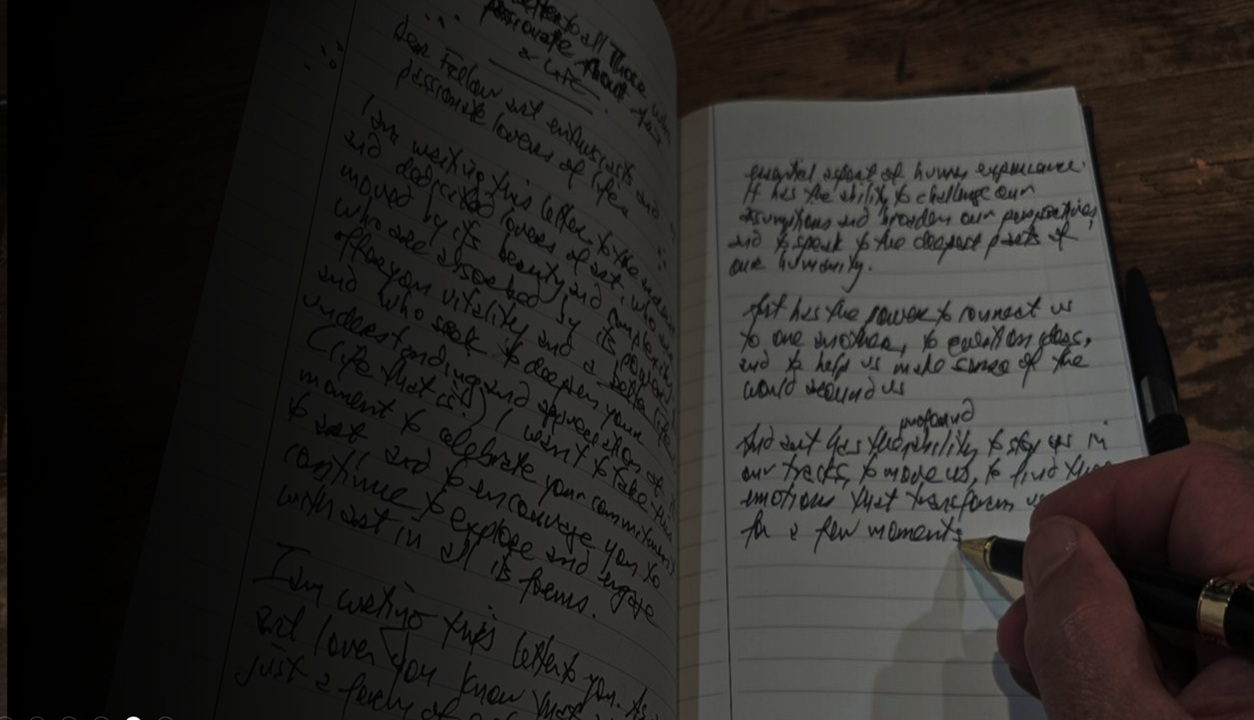 Letter to all Those who
passionate About
Life
Dear Fellow art enthusiasts and
passionate lovers of life,
I am writing this letter to the
and dedicated lovers of art, who are
moved by its beauty and complexity
who are absorbed by its
offer you vitality and a better life
and who seek to deepen your
understanding and appreciation of it
(Life that is!) I want to take this
moment to celebrate your commitment
to art and to encourage you to
continue to explore and engage
with art in all its forms.
I am writing this letter to you. As
art lover you know that
just a form of
essential aspect of human experience.
It has the ability to challenge our
assumptions and broaden our perspectives,
and to speak to the deepest parts of
our humanity.
Art has the power to connect us
to one another, to question ideas,
and to help us make sense of the
world around us
profound
And art has the ability to stop us in
our tracks, to move us, to find
emotions that transform us
for a few moments